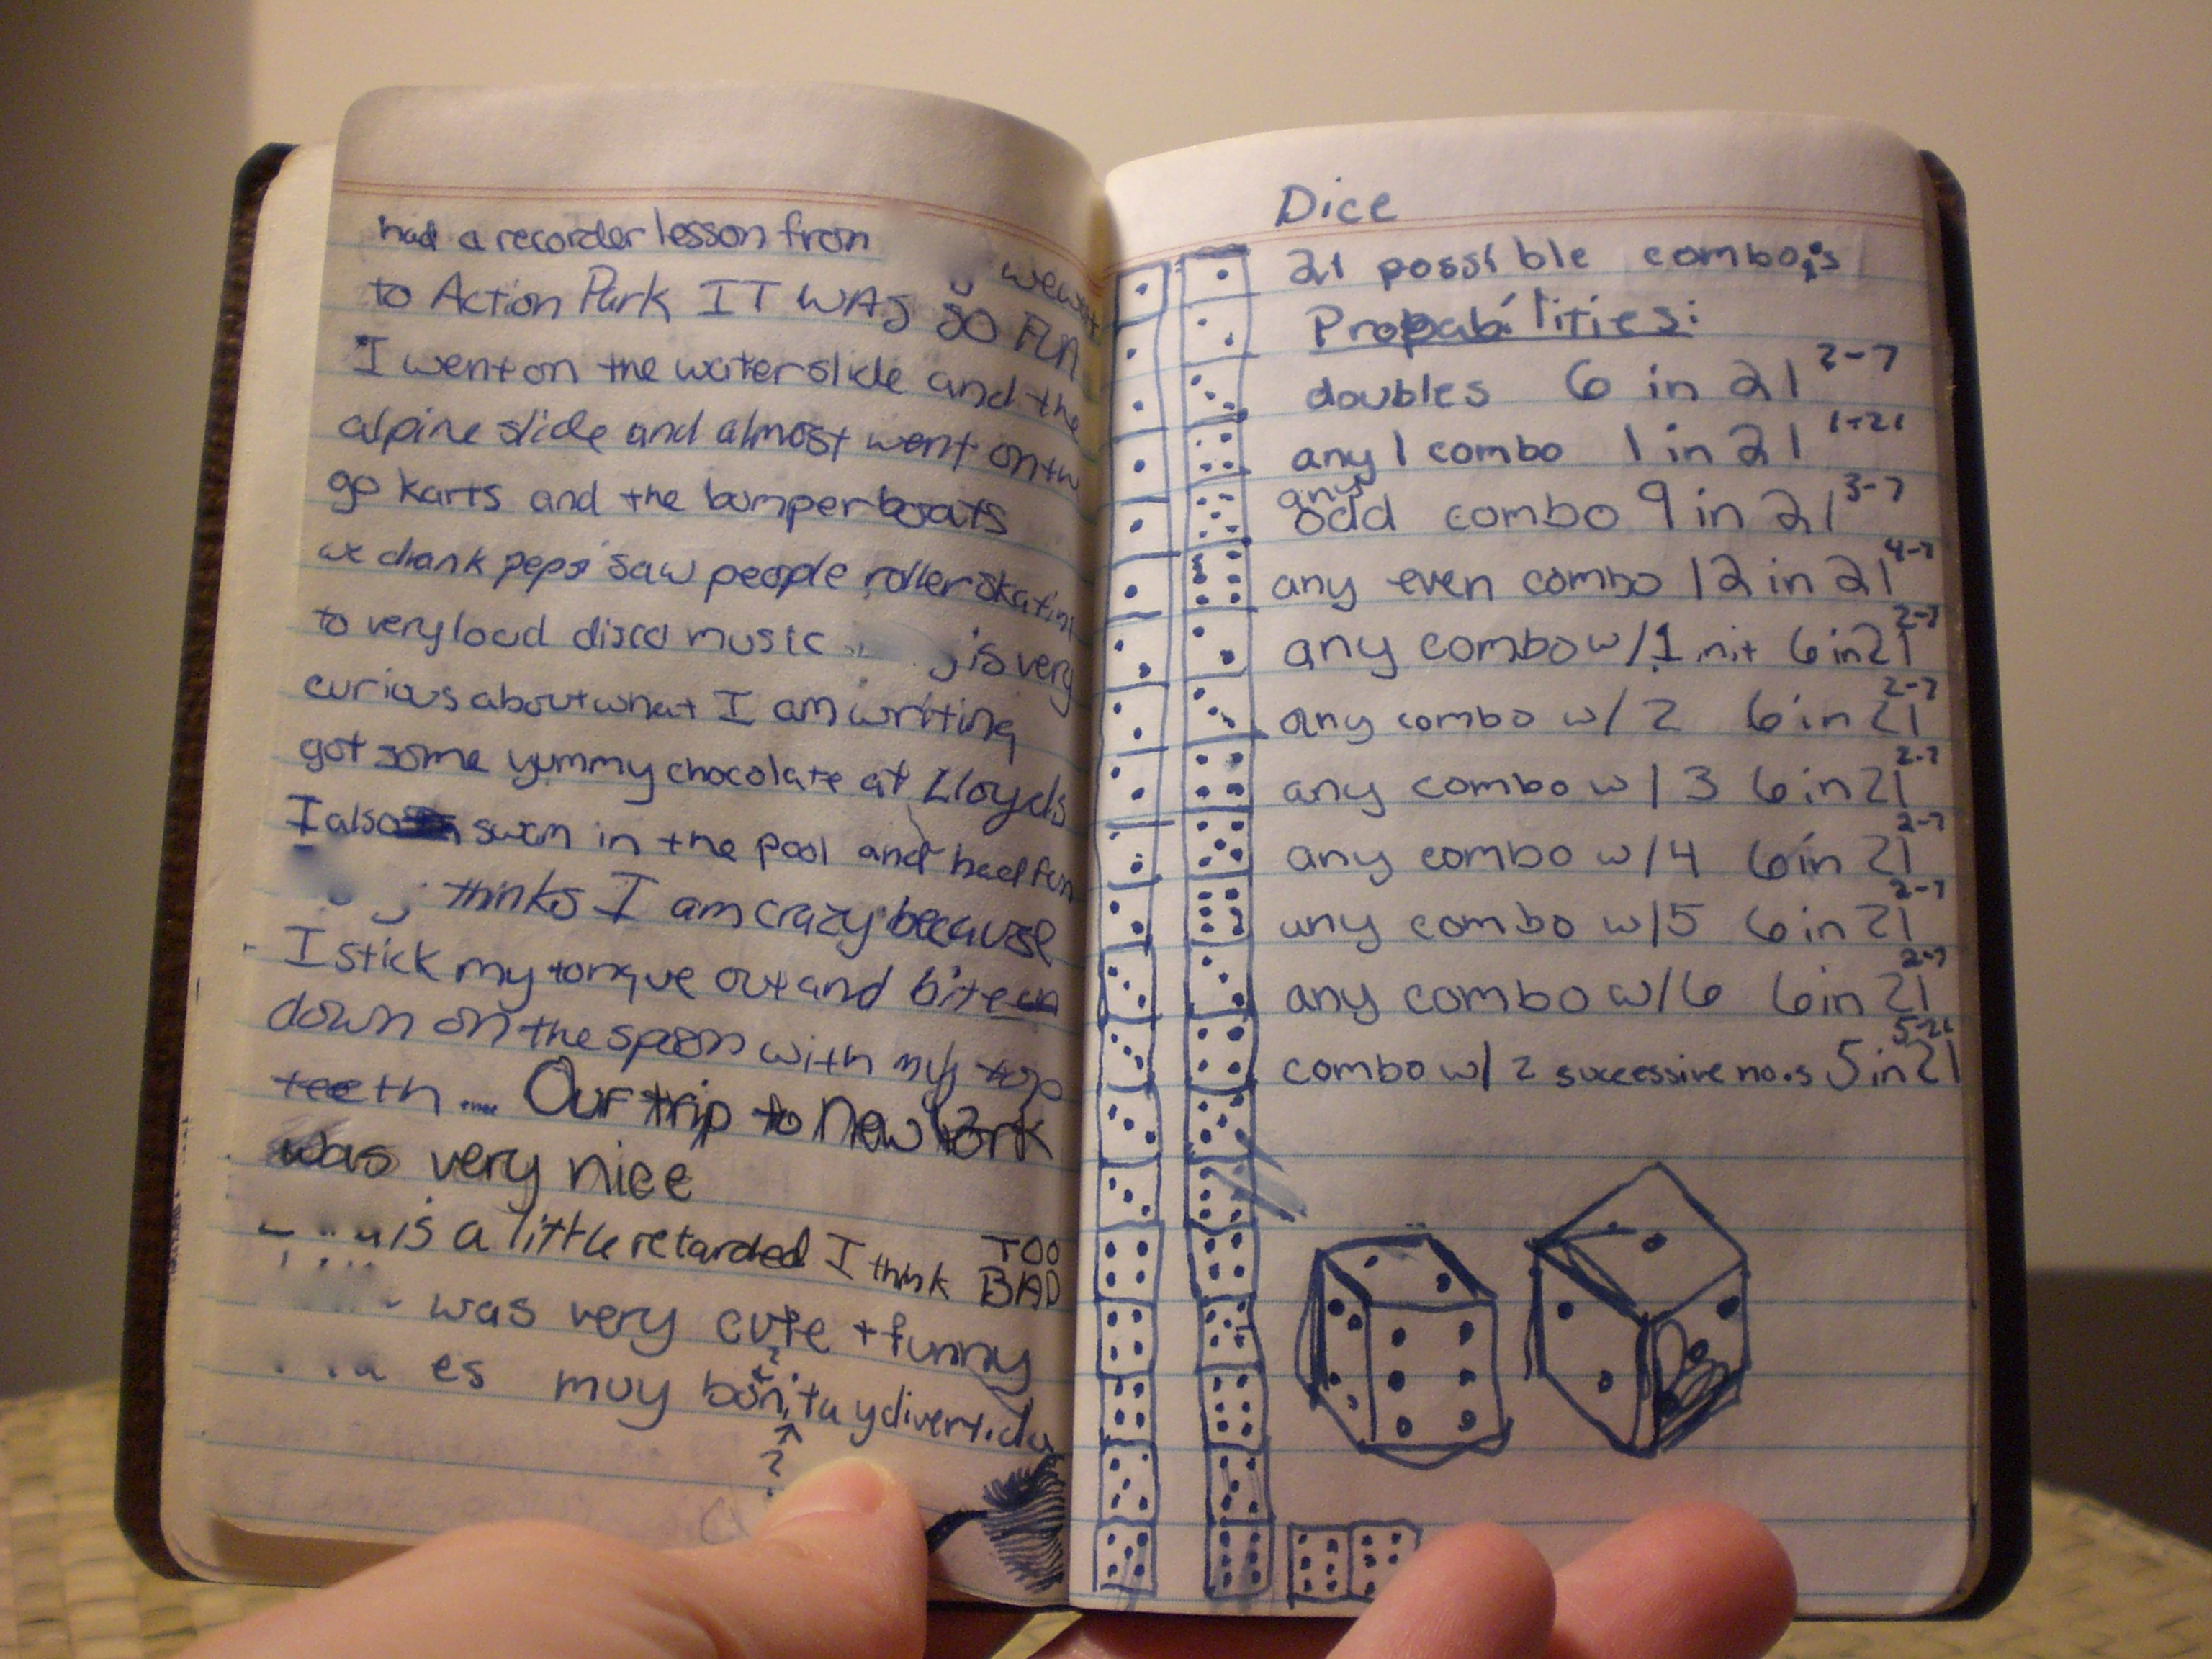 had a recorder lesson from
went
to Action Park IT WAS SO FUN
I went on the waterslide and the
alpine slide and almost went on the
go karts and the bumper boats
we drank pepsi saw people roller skating
to very loud disco music is very
curious about what I am writing
got some yummy chocolate at Lloyds
I also swam in the pool and had fun
thinks I am crazy because
I stick my tongue out and bite
down on the spoon with my top
teeth.... Our trip to New York
was very nice
is a little retarded I think TOO BAD
was very cute + funny
es muy bonita y divertida
?
?
Dice
21 possible combo's
Probabilities:
doubles 6 in 21 2-7
any 1 combo 1 in 21 1-21
any odd combo 9 in 21 3-7
any even combo 12 in 21 4-7
any combo w/1 in it 6 in 21 2-7
any combo w/ 2 6 in 21 2-7
any combo w/ 3 6 in 21 2-7
any combo w/4 6 in 21 2-7
any combo w/5 6 in 21 2-7
any combo w/6 6 in 21 2-7
combo w/ 2 successive no.s 5 in 21 5-21